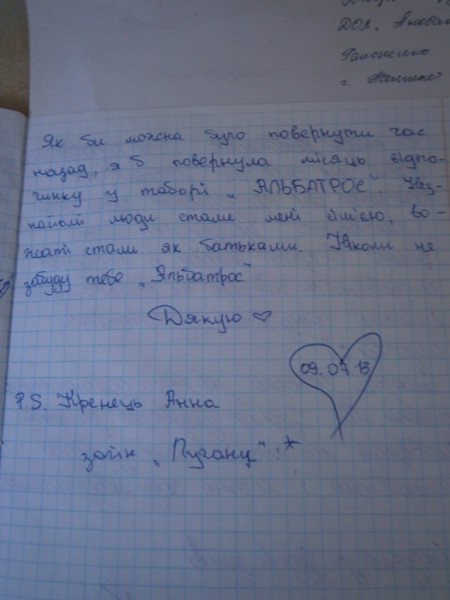 ДОЛ, Альба
Як би можна було повернути час
назад, я б повернула місяць відпо-
чинку у таборі „ЯЛЬБАТРОС". Нез-
найомі люди стали мені сім'єю, во-
жаті стали як батьками. Ніколи не
забуду тебе „Яльбатрос"
Дякую ♡
09.07.13
P.S. Кренець Анна
загін